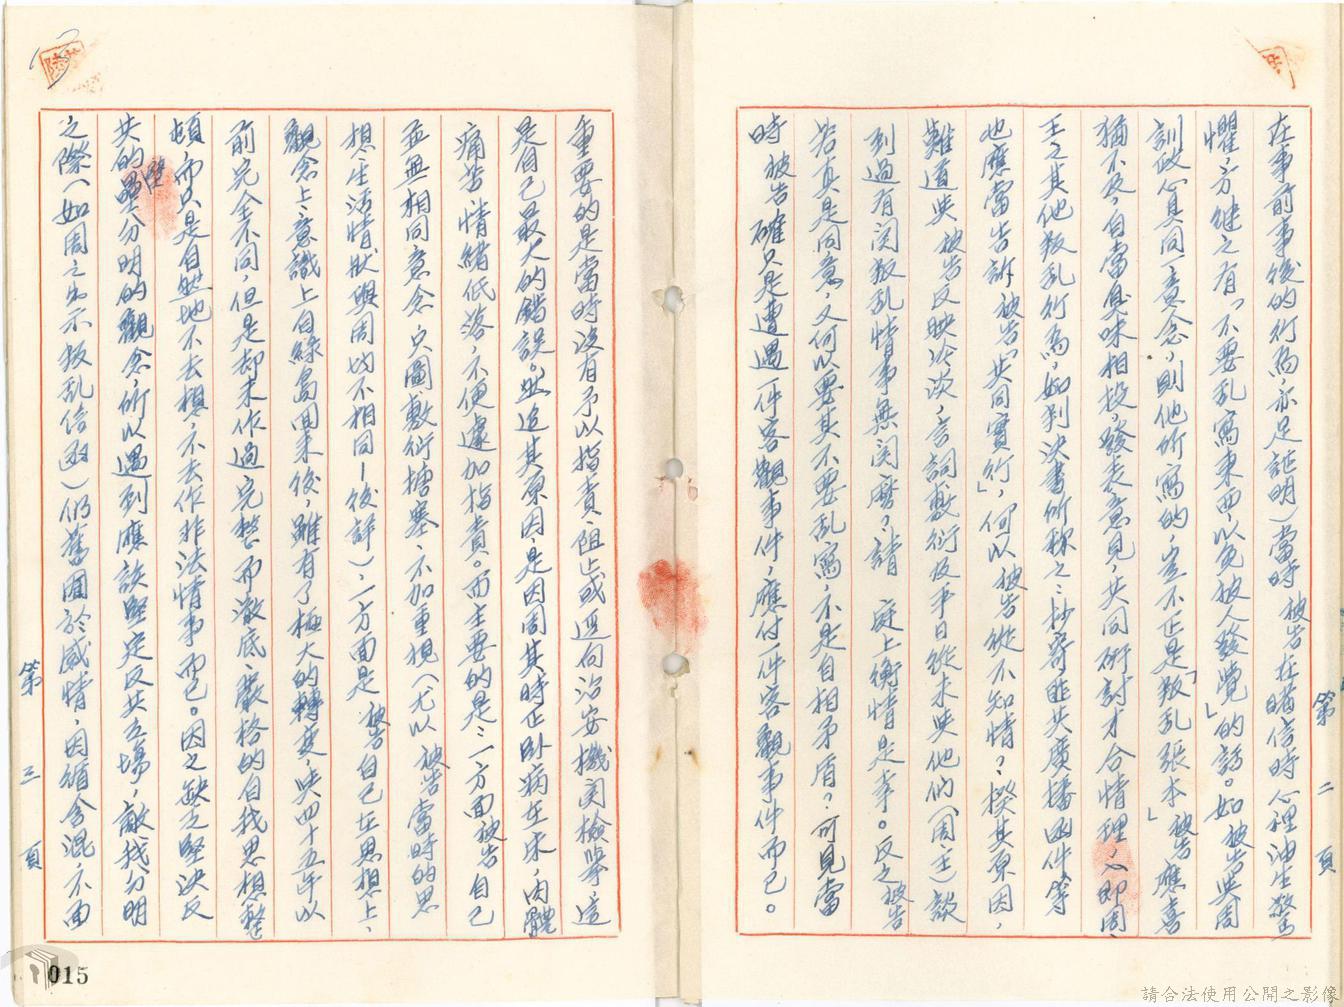 在事前事後的行為，亦足証明）當時 被告在瞎信時心裡油生驚
懼，方継之有「不要乱寫東西，以免被人發覺」的話。如 被告與周
訓政真同一意念，則他所寫的，豈不正是「叛乱張本」被告應喜
猶不及，自當臭味相投，發表意見，共同研討才合情理，心即周、
王之其他叛乱行為，如判決書所称之：抄寄匪共廣播函件等
也應當告訴 被告「共同實行」，何以 被告從不知情？揆其原因，
難道與 被告反映冷淡，言詞敷衍及事日從未與他們（周王）談
到過有関叛乱情事無関麼？請 庭上衡情是幸。反之 被告
若真是同意，又何以要其不要乱寫，不是自相矛盾？可見當
時 被告確只是遭遇一件客觀事件，應付一件客觀事件而已。
第 二 頁
重要的是當時沒有予以指責，阻止或逕向治安機関檢舉，這
是自己最大的錯誤。然追其原因，是因周其時正卧病在床，肉體
痛苦，情緒低落，不便遽加指責。而主要的是：一方面 被告自己
並無相同意念，只圖敷衍搪塞，不加重視（尤以 被告當時的思
想、生活情狀與周均不相同－後詳），一方面是 被告自己在思想上、
觀念上、意識上自綠島回來後，雖有了極大的轉变，與四十五年以
前完全不同，但是却未作過完整而澈底、嚴格的自我思想整
頓，而只是自然地不去想，不去作非法情事而已。因之缺乏堅決反
共的壁壘分明的觀念，所以遇到應該堅定反共立場，敵我分明
之際（如周之出示叛乱信函）仍舊囿於感情，因循含混不面
第 三 頁
015
請合法使用公開之影像